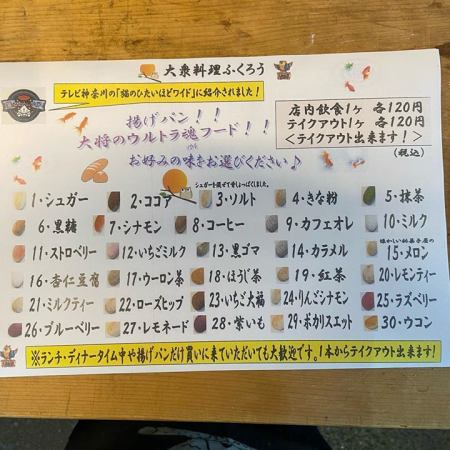 大衆料理ふくろう
テレビ神奈川の「猫のひたいほどワイド」に紹介されました!
揚げパン!!
大将のウルトラ魂フード!!
お好みの味をお選びください♪
店内飲食1ヶ 各120円
テイクアウト1ヶ 各120円
<テイクアウト出来ます!>
(税込)
シュガーを混ぜて甘じょっぱくしました。
1・シュガー 2・ココア 3・ソルト 4・きな粉 5・抹茶
6・黒糖 7・シナモン 8・コーヒー 9・カフェオレ 10・ミルク
懐かしい給菓子屋の
11・ストロベリー 12・いちごミルク 13・黒ゴマ 14・カラメル 15・メロン
16・杏仁豆腐 17・ウーロン茶 18・ほうじ茶 19・紅茶 20・レモンティー
21・ミルクティー 22・ローズヒップ 23・いちご大福 24・りんごシナモン 25・ラズベリー
26・ブルーベリー 27・レモネード 28・紫いも 29・ポカリスエット 30・ウコン
※ランチ・ディナータイム中や揚げパンだけ買いに来ていただいても大歓迎です。1本からテイクアウト出来ます!